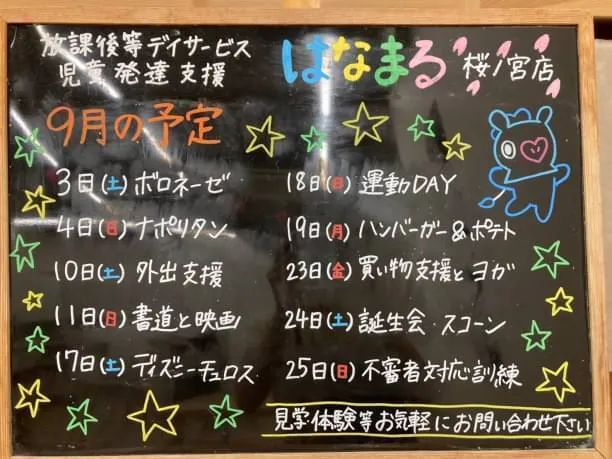 放課後等デイサービス
児童発達支援
はなまる 桜ノ宮店
9月の予定
3日(土) ボロネーゼ
4日(日) ナポリタン
10日(土) 外出支援
11日(日) 書道と映画
17日(土) ディズニーチュロス
18日(日) 運動DAY
19日(月) ハンバーガー&ポテト
23日(金) 買い物支援とヨガ
24日(土) 誕生会 スコーン
25日(日) 不審者対応訓練
見学体験等お気軽にお問い合わせ下さい